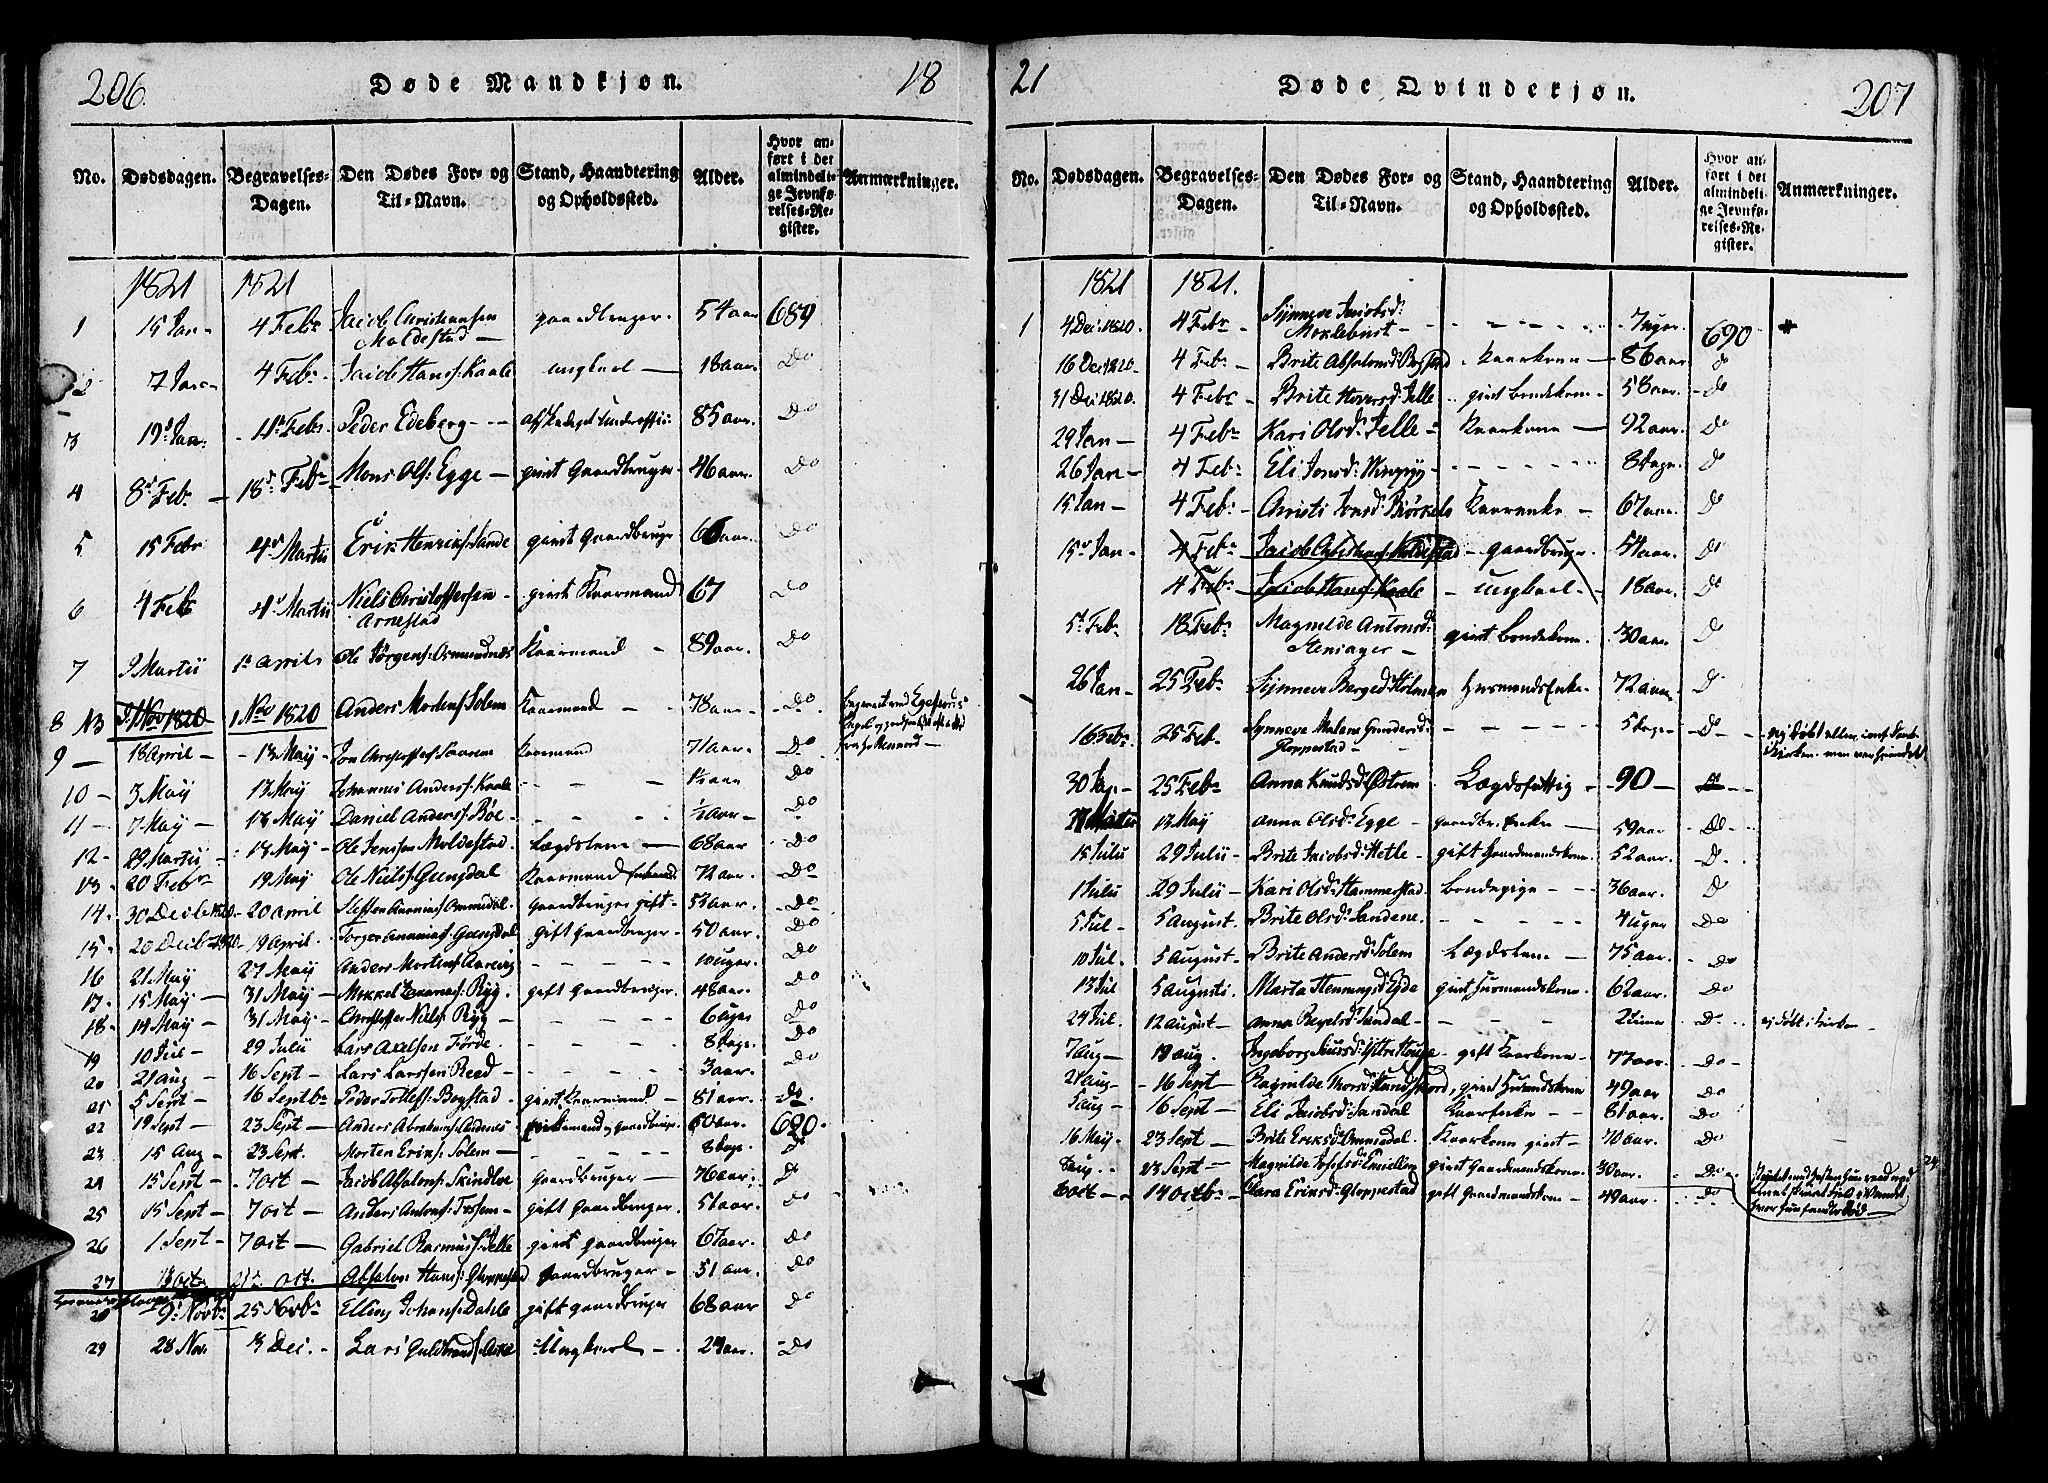 206. Døde Mandkjøn. 18
No. Dødsdagen. Begravelses-Dagen. Den Dødes For- og Til-Navn. Stand, Haandtering og Opholdssted. Alder. Hvor anført i det almindelige Jevnførelses-Register. Anmærkninger.
1821 1821
1 15 Jan- 4 Febr Jacob Christensen Moldestad gaardbruger. 54 aar 689
2 7 Jan- 4 Febr. Jacob Hans: Kaale ungkael 18 aar Do
3 19d Jan. 4d Febr. Peder Edeberg 85 aar. Do
4 8d Febr. 18d Febr Mons Ols: Egge givt Gaardbruger 46 aar. Do
5 15 Febr 4d Martii Erik Henriks: Sande givt Gaardbruger 66 aar. Do
6 4 Feb 4d Martii Niels Christoffersen Arnestad givt Kaarmand 67 Do
7 9 Martii 1d April Ole Jørgens: Osmundnes Kaarmand 89 aar. Do
8 NB 9 Nov 1820 1 Nov 1820 Anders Mortens: Solem Kaarmand 78 aar Do
9 18 April 13 May Jon Christoffers: Kaarmand 71 aar. Do
10 3 May 13 May Johannes Anders: Kaale 1½ aar Do
11 7 May 13 May Daniel Anders: Bøe ½ aar Do
12 29 Martii 13 May Ole Jenssen Moldestad Lægdslem 68 aar Do
13 20 Febr 19 May Ole Niels: Gungdal Kaarmand Enkemand 72 aar. Do
14 30 Decbr 1820. 20 April Steffen Ananias: Ommedal gaardbruger gift 53 aar. Do
15 20 Decbr 1820. 19 April. Torger Ananias: Gungdal gift gaardbruger 50 aar. Do
16 21 May 27 May Anders Mortens: Aarevig 10 uger. Do
17 15 May 31 May Mekkel Ryg. gift gaardbruger. 48 aar. Do
18 14 May 31 May Christoffer Niels: Ryg 6 uger Do
19 10 Jul 29 Julii Lars Axelsen Førde. 8 dage. Do
20 21 Aug 16 Sept Lars Larssen Reed 3 aar. Do
21 5 Sept 16 Septbr Peder Tollefs: Bogstad givt Kaarmand 81 aar. Do.
22 19 Sept 23 Sept Anders Abrahams: Andenes Enkemand og gaardbruger 60 aar. 690
23 15 Aug 23 Sept. Morten Eriks: Solem 8 dage. Do
24 15 Sept 7 oct Jacob Absalons: Skindloe Gaardbruger 76 aar. Do
25 15 Sept 7 oct Anders Antons: Fossem gift gaardbruger. 51 aar. Do
26 1 Sept 7 oct Gabriel Rasmus: Jelle givt gaardbruger 67 aar. Do
27 13 oct 21d oct. Absalon Hans: Gloppestad Gaardbruger 51 aar. Do
28 9d Novbr. 25 Novbr Elling Johans: Dahle gift gaardbruger 68 aar Do
29 28 Nov. 3 Dec. Lars Guldbrands: Aase Ungkarl 24 aar. Do
21 Døde Qvinderkjøn. 207
No. Dødsdagen. Begravelses-Dagen. Den Dødes For- og Til-Navn. Stand, Haandtering og Opholdssted. Alder. Hvor anført i det almindelige Jevnførelses-Register. Anmærkninger.
1821 1821.
1 4 Dec. 1820. 4 Febr Synneve Jacobsd: Moklebust 7 uger. 690
16 Dec 1820. 4 Febr. Brite Absalonsd: Bogstad Kaarkone 86 aar Do
31 Dec 1820. 4 Febr Brite Siversd: Jelle givt bondekone 58 aar. Do
29 Jan 4 Febr Kari Olsd: Jelle Kaarkone 92 aar. Do
26 Jan 4 Febr. Eli Jonsd: 8 dage. Do
15 Jan 4 Febr. Christi Jonsd: Bjørkels Kaarenke 67 aar. Do
15d Jan 4 Febr Jacob Christens: Moldestad gaardbruger 54 aar. Do
4 Febr. Jacob Hans: Kaale ungkael 18 aar. Do
5d Febr. 18 Febr Magnilde Antonsd: Steniager givt bondekone. 30 aar Do
26 Jan 25 Febr Synneve Bergsd: Holmen Husmands Enke. 72 aar Do
16 Febr. 25 Feb. Synneve Malene Gundersd: Gloppestad 5 dage. Do
30 Jan. 25 Febr Anna Knudsd: Østrem Lægdsfattig 90
27 Martii 13 May Anna Olsd: Egge gaardbr. Enke 59 aar Do
15 Julii 29 Julii Brite Jacobsd: Hetle gift Gaardmandskone. 52 aar. Do
1 Julii 29 Julii Kari Olsd: Hammerstad bondepige 36 aar. Do
5 Jul 5 August. Brite Olsd: Sandene. 4 uger Do
10 Jul. 5 August Brite Andersd: Solem Lægdslem 75 aar. Do
13 Jul 5 Augusti. Marta Henningsd: Egde givt Husmandskone. 62 aar. Do
24 Jul. 12 August Anna Sandal 2 timer Do ej døbt i kirken
7 Aug 19 aug. Ingeborg gift Kaarkone 77 aar. Do
21 Aug 16 Sept Ragnilde Thorsd: givt Husmandskone 49 aar Do
5 Aug 16 Sept Eli Jacobsd: Sandal Kaarenke 81 aar. Do
16 May 23 Sept Brite Eriksd: Ommedal. Kaarkone givt 70 aar. Do
8 aug. 23 Sept Magnilde Josefsd: givt Gaardmandskone. 30 aar. Do
6 oct 14 octbr Sara Eriksd: Gloppestad gift Gaardmandskone 49 aar. Do